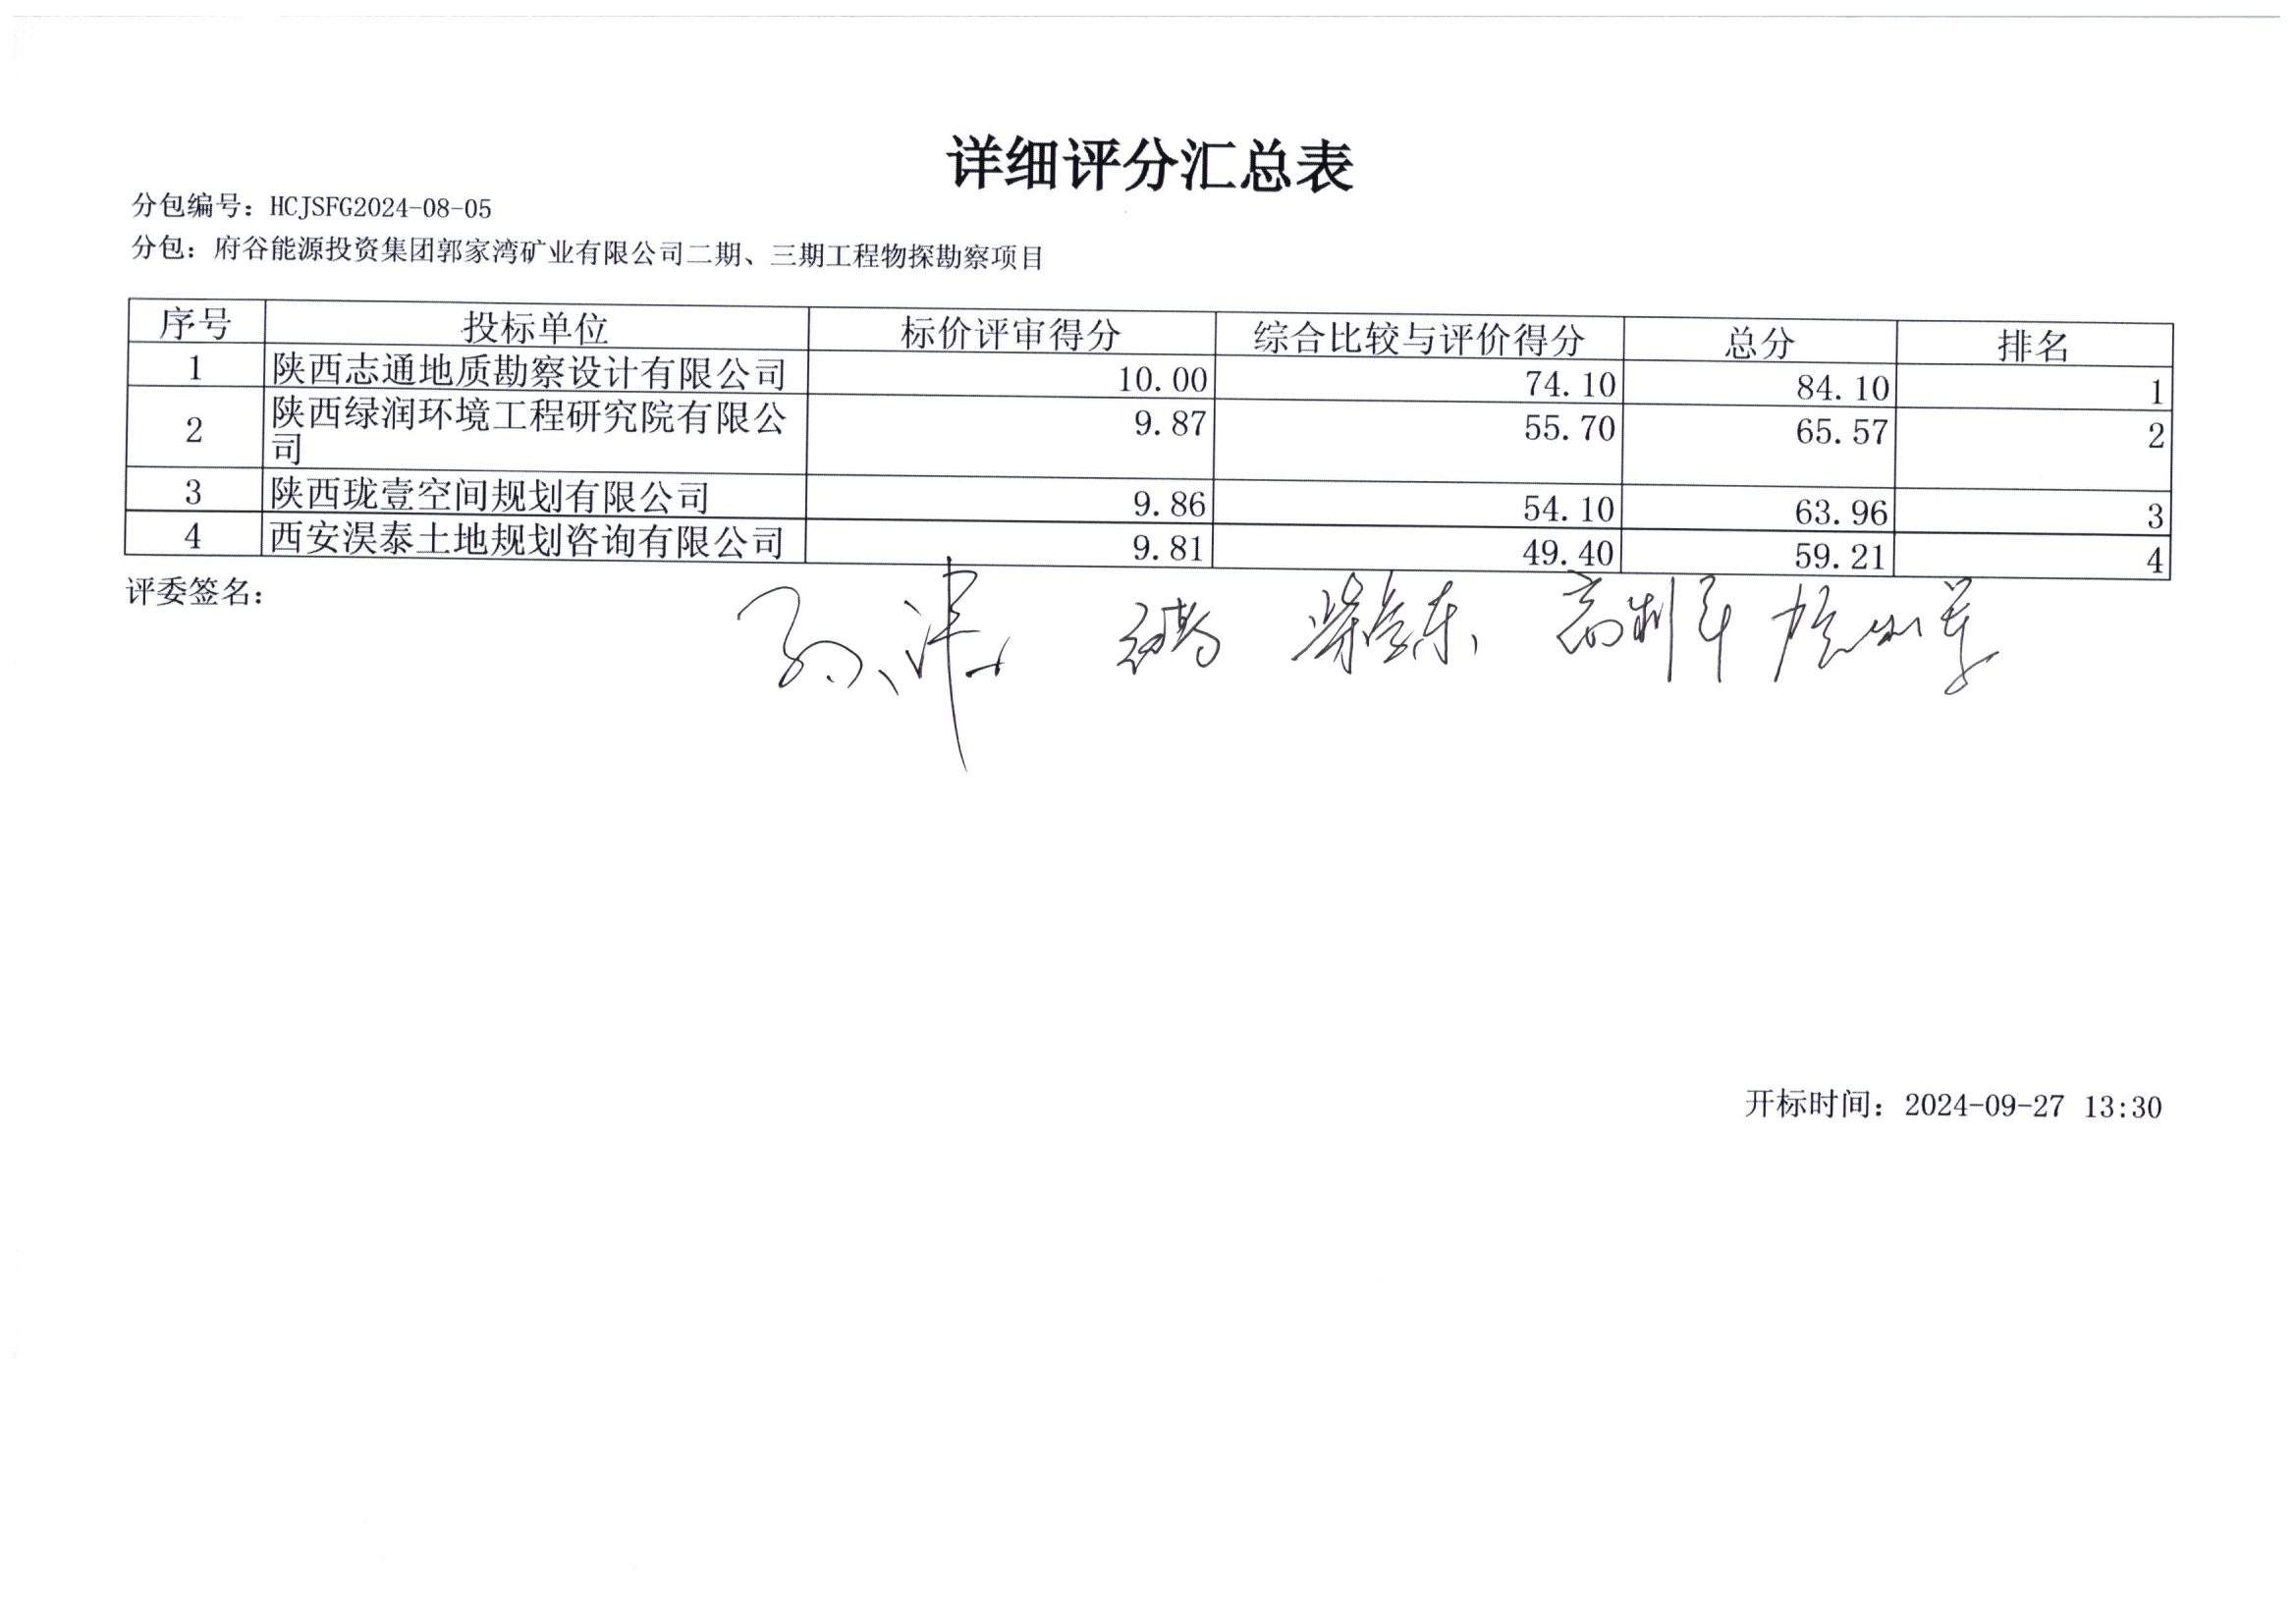 详细评分汇总表
分包编号：HCJSFG2024-08-05
分包：府谷能源投资集团郭家湾矿业有限公司二期、三期工程物探勘察项目
序号 投标单位 标价评审得分 综合比较与评价得分 总分 排名
1 陕西志通地质勘察设计有限公司 10.00 74.10 84.10 1
2 陕西绿润环境工程研究院有限公
司 9.87 55.70 65.57 2
3 陕西珑壹空间规划有限公司 9.86 54.10 63.96 3
4 西安淏泰土地规划咨询有限公司 9.81 49.40 59.21 4
评委签名：
开标时间：2024-09-27 13:30